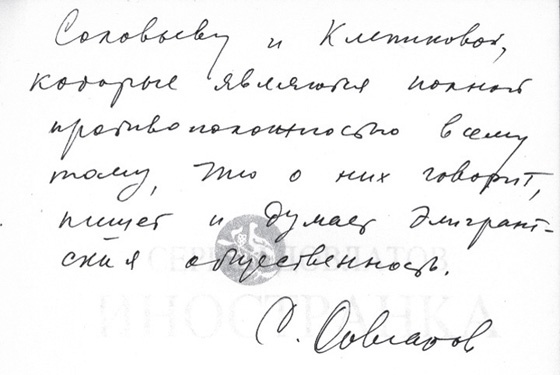 Соловьеву и Клепиковой,
которые являются полной
противоположностью всему
тому, что о них говорит,
пишет и думает эмигрант-
ская общественность.
СЕРГЕЙ ДОВЛАТОВ
ИНОСТРАНКА
С. Довлатов